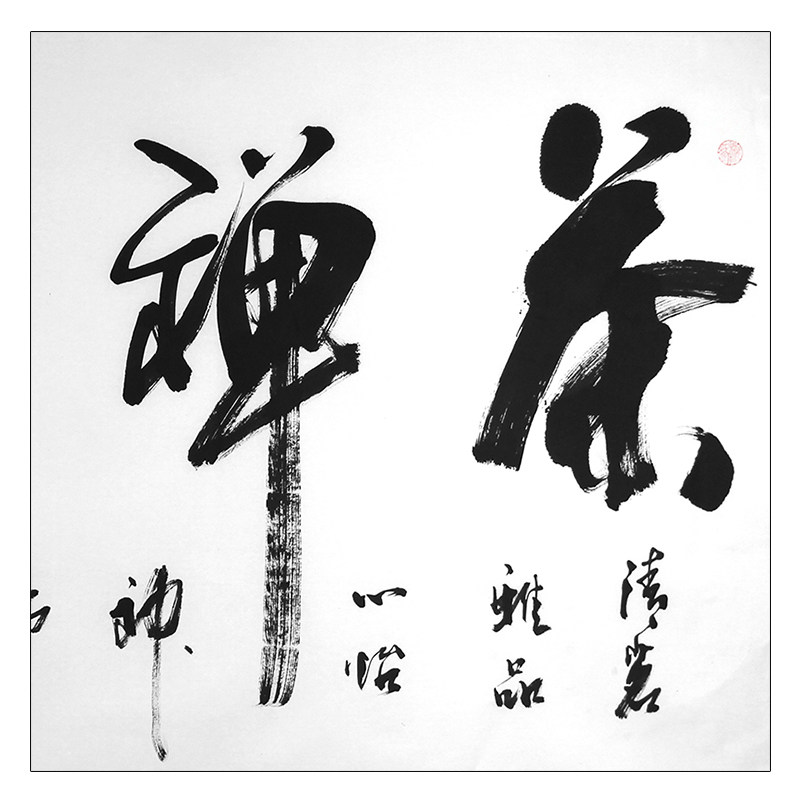 茶禅
清茗
雅品
心怡
神